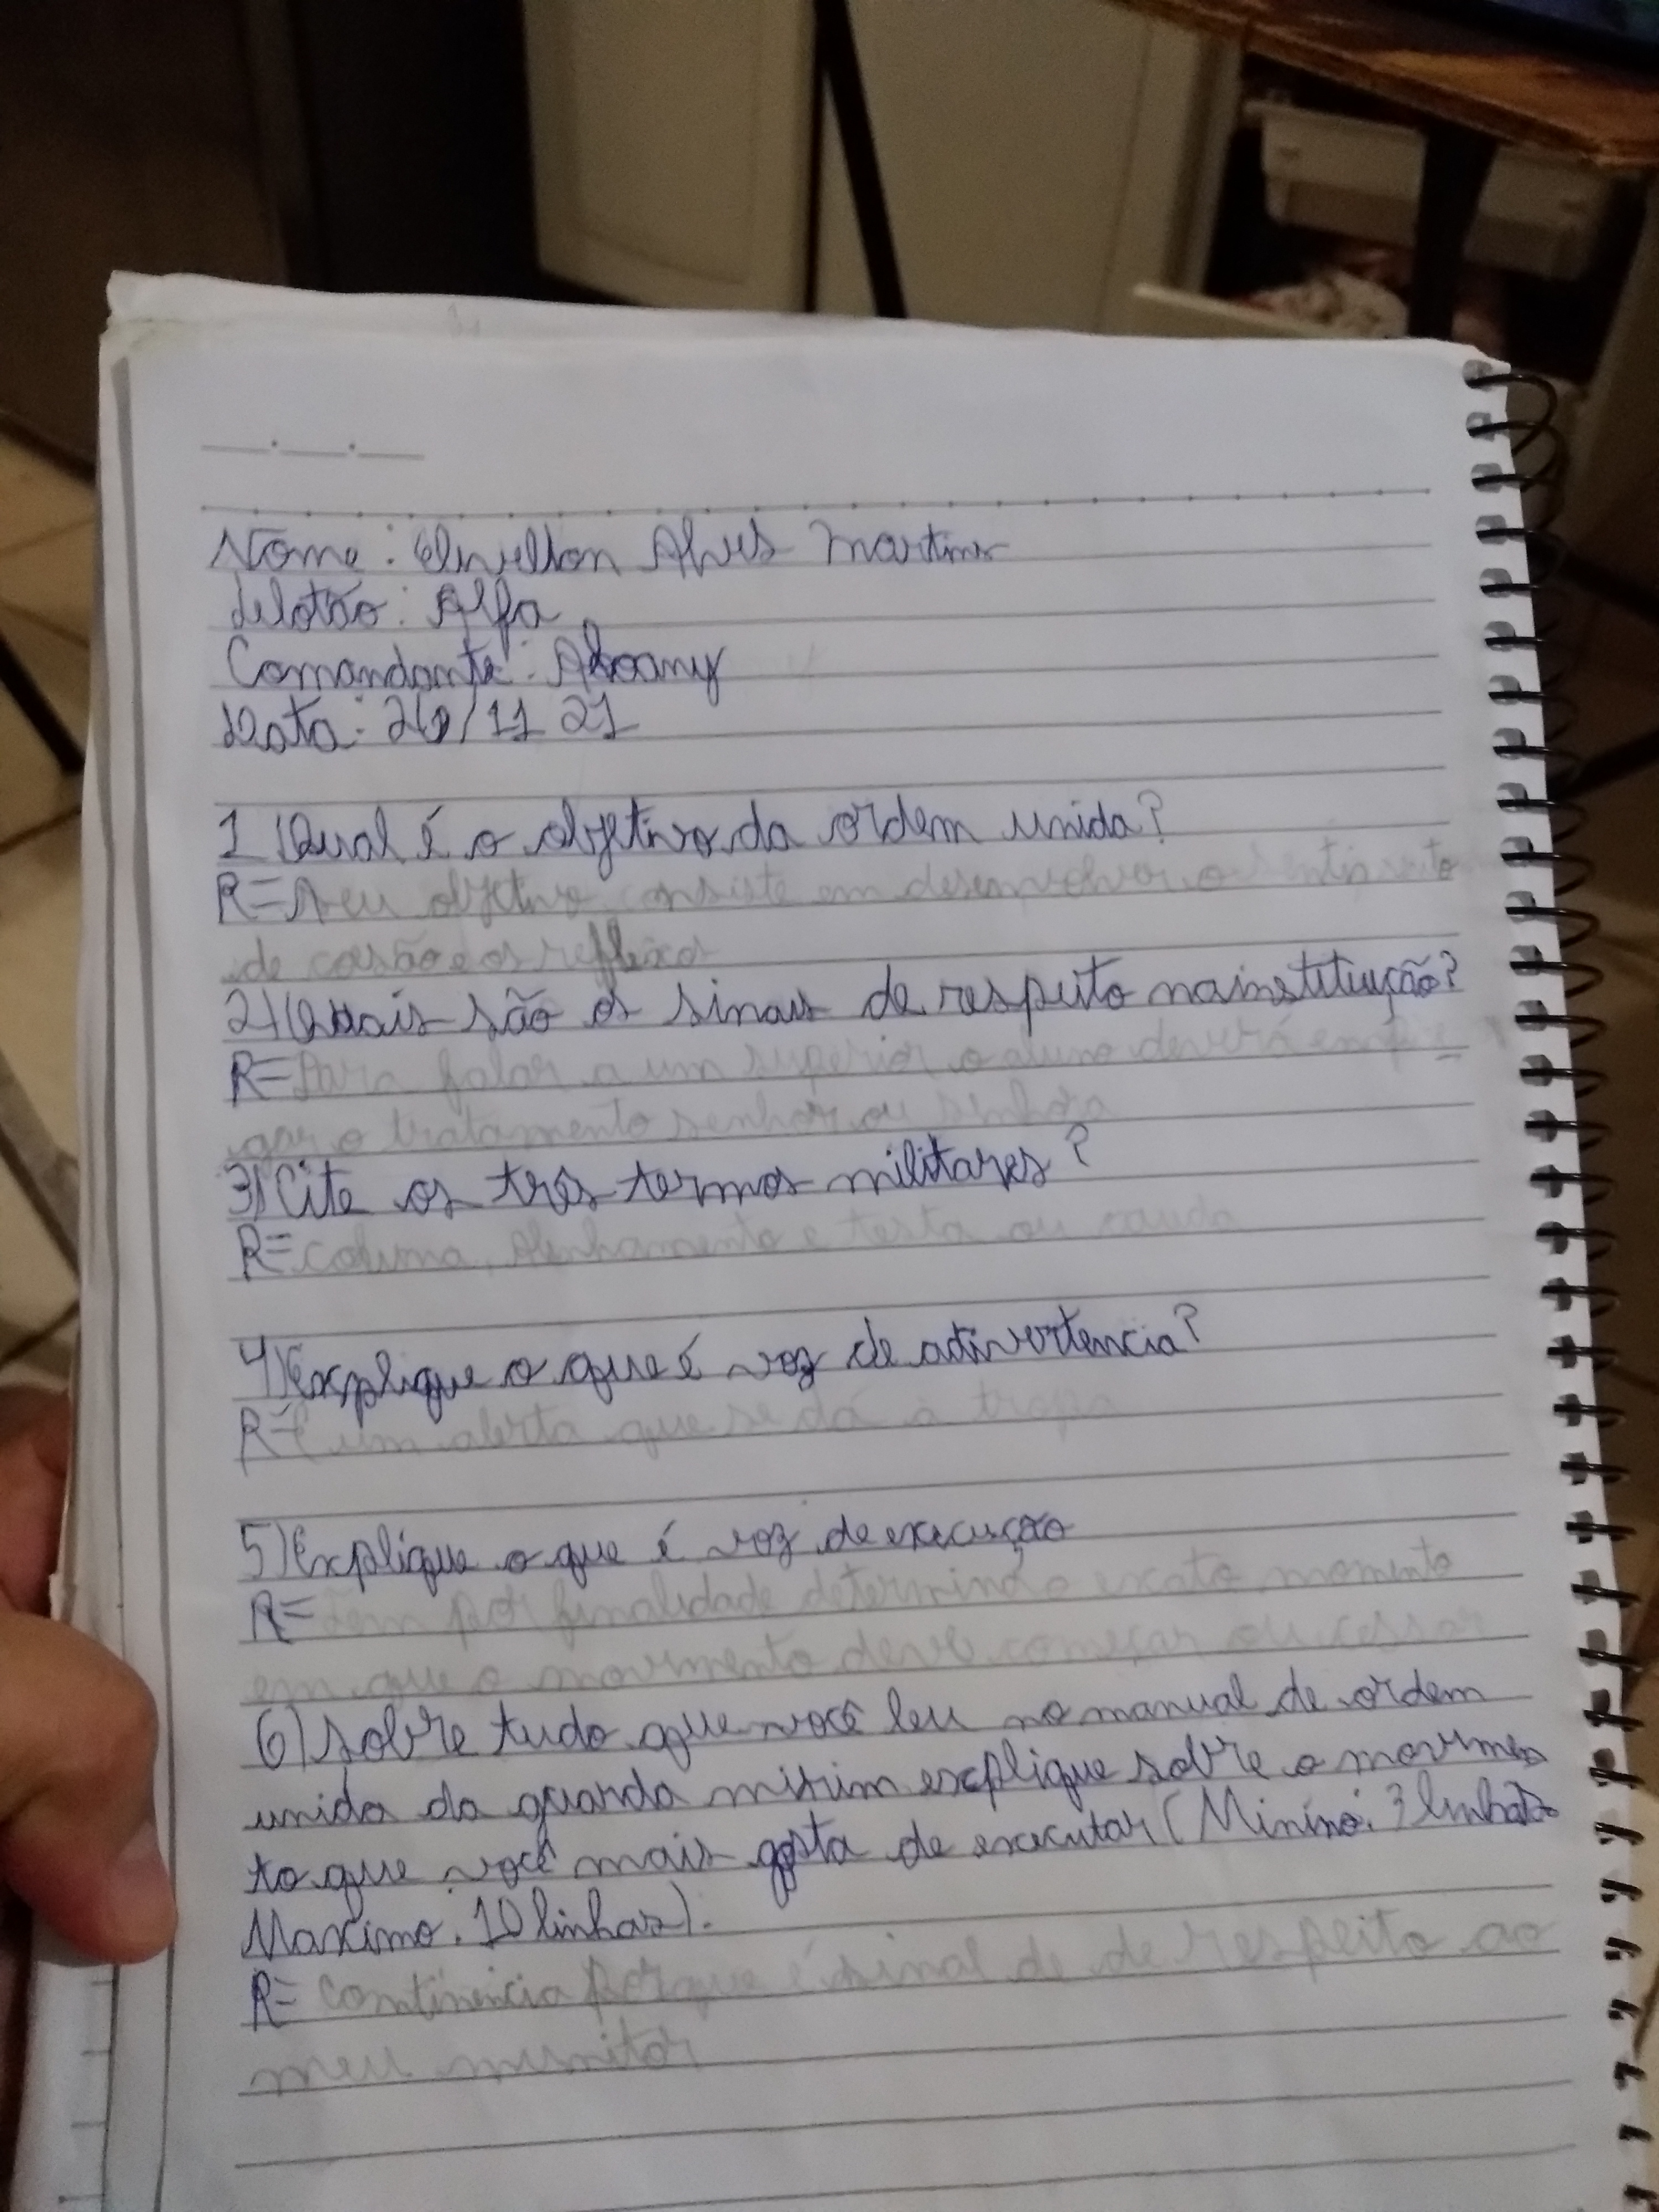 Nome: Alves Martins
Pelotão: Alfa
Comandante:
Data: 11 21
1)Qual é o objetivo da ordem unida?
R= Seu objetivo consiste em desenvolver o sentimento
de coesão e os reflexos
2)Quais são os sinais de respeito na instituição?
R= Para falar a um superior o aluno deverá empre
gar o tratamento senhor ou senhora
3)Cite os três termos militares?
R= coluna, Alinhamento e testa ou cauda
4)Explique o que é voz de adivertencia?
R= É um alerta que se dá à tropa
5)Explique o que é voz de execução
R= Tem por finalidade determinar o exato momento
em que o movimento deve começar ou cessar
6)Sobre tudo que você leu no manual de ordem
unida da guarda mirim explique sobre o movimen
to que você mais gosta de executar (Minimo: 3 linhas
Maximo. 10 linhas).
R= Continencia porque é sinal de de respeito ao
meu